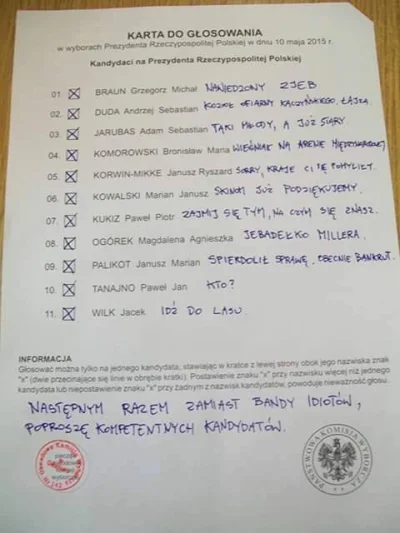 KARTA DO GŁOSOWANIA
w wyborach Prezydenta Rzeczypospolitej Polskiej w dniu 10 maja 2015 r.
Kandydaci na Prezydenta Rzeczypospolitej Polskiej
01 BRAUN Grzegorz Michał NAWIEDZONY ZJEB
02. DUDA Andrzej Sebastian KOZIOŁ OFIARNY KACZYŃSKIEGO. ŁAJZA.
03 JARUBAS Adam Sebastian TAKI MŁODY, A JUŻ STARY
04. KOMOROWSKI Bronisław Maria WIEŚNIAK NA ARENIE MIĘDZYNARODOWEJ
05. KORWIN-MIKKE Janusz Ryszard SORRY, KRAJE CI SIĘ POMYLIŁY.
06 KOWALSKI Marian Janusz SKINOM JUŻ PODZIĘKUJEMY.
07. KUKIZ Paweł Piotr ZAJMIJ SIĘ TYM, NA CZYM SIĘ ZNASZ.
08. OGÓREK Magdalena Agnieszka JEBADEŁKO MILLERA.
09. PALIKOT Janusz Marian SPIERDOLIŁ SPRAWĘ. OBECNIE BANKRUT.
10. TANAJNO Paweł Jan KTO?
11. WILK Jacek IDŹ DO LASU
INFORMACJA
Głosować można tylko na jednego kandydata, stawiając w kratce z lewej strony obok jego nazwiska znak
"x" (dwie przecinające się linie w obrębie kratki). Postawienie znaku "x" przy nazwisku więcej niż jednego
kandydata lub niepostawienie znaku "x" przy żadnym z nazwisk kandydatów, powoduje nieważność głosu.
NASTĘPNYM RAZEM ZAMIAST BANDY IDIOTÓW,
POPROSZĘ KOMPETENTNYCH KANDYDATÓW.
PAŃSTWOWA KOMISJA WYBORCZA